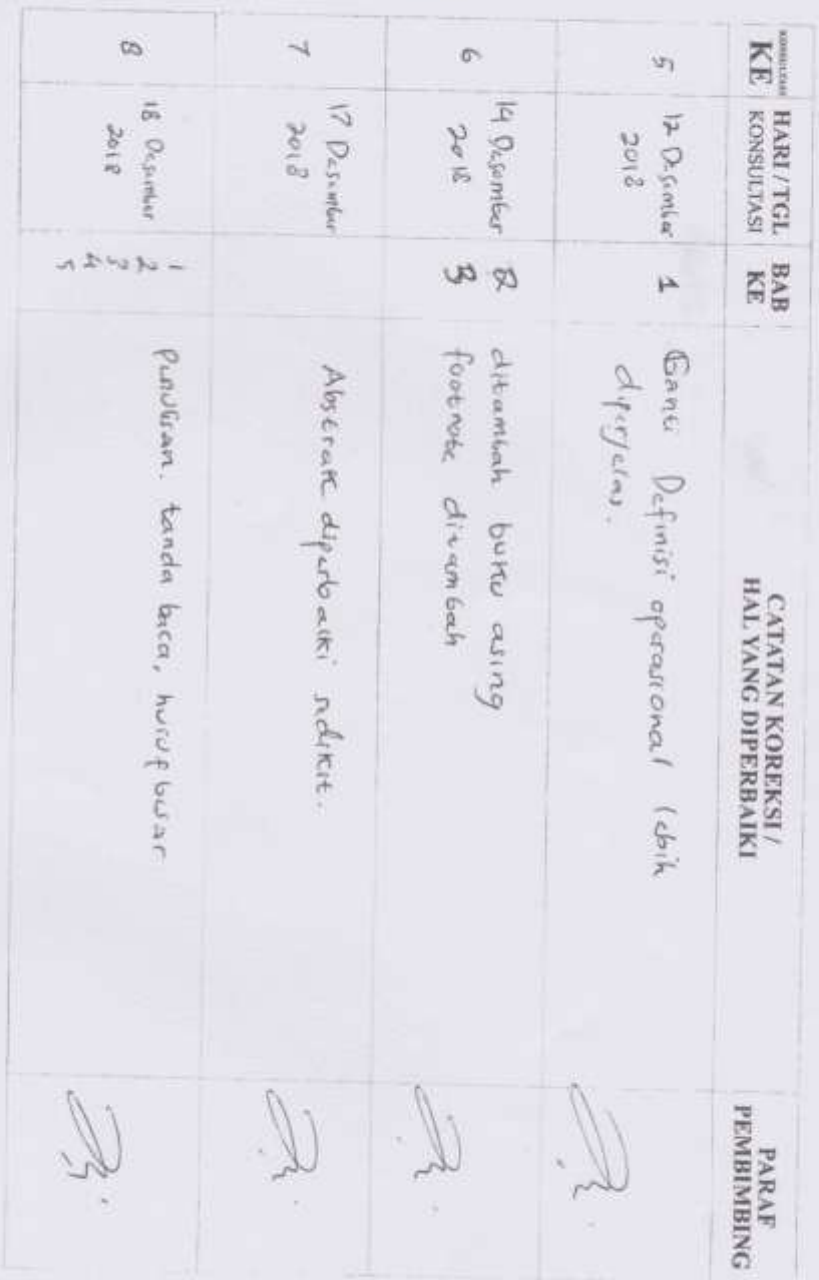 KONSULTASI
KE
HARI / TGL
KONSULTASI
BAB
KE
CATATAN KOREKSI /
HAL YANG DIPERBAIKI
PARAF
PEMBIMBING
5
12 Desember
2018
1
Ganti Definisi operasional lebih
diperjelas.
6
14 Desember
2018
2
3
ditambah buku asing
footnote ditambah
7
17 Desember
2018
Abstrak diperbaiki sedikit.
8
18 Desember
2018
1
2
3
4
5
Penulisan. tanda baca, huruf besar